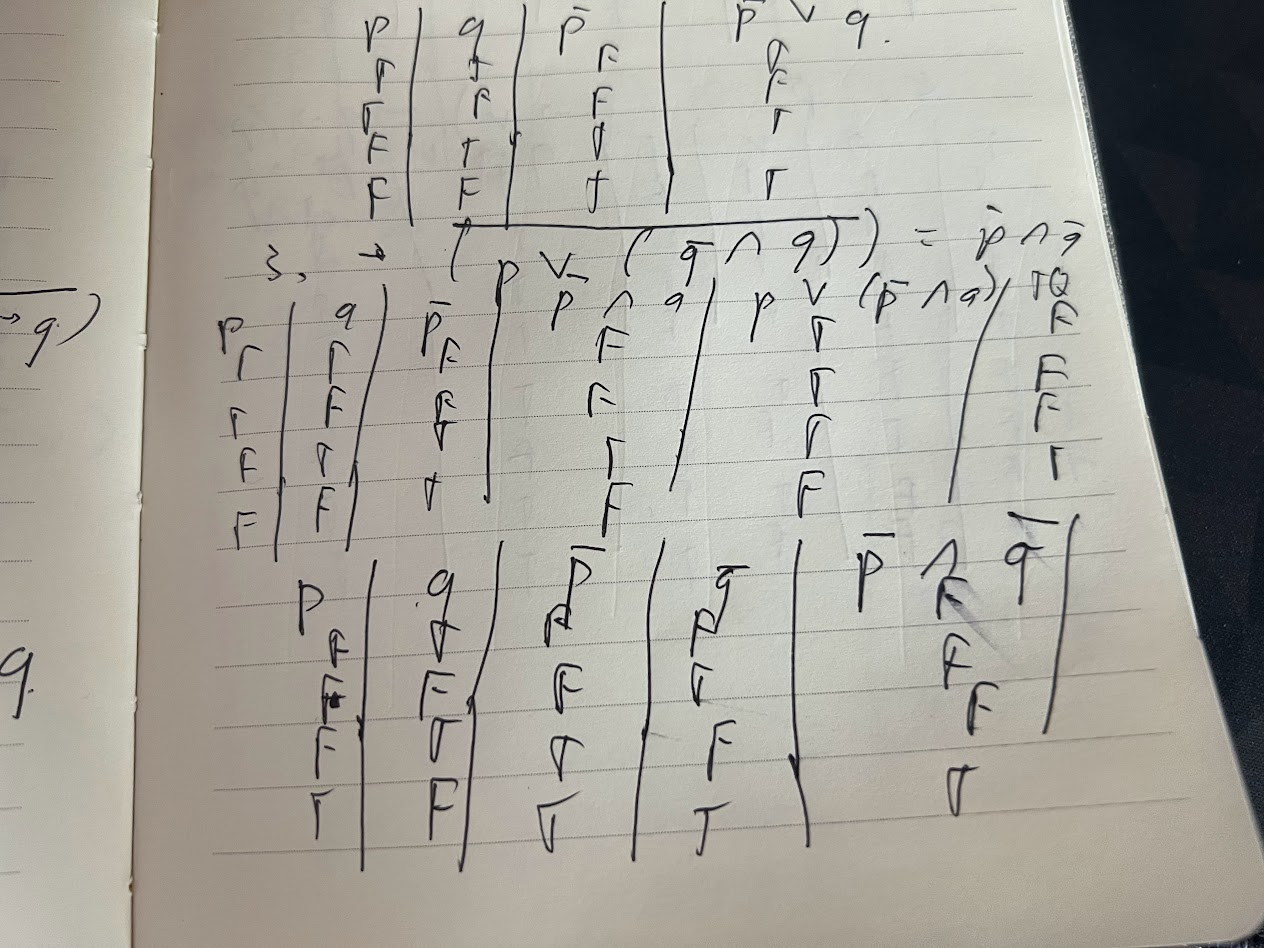 p | q | p̄ | p̄ ∨ q.
T | T | F | T
T | F | F | F
F | T | T | T
F | F | T | T
3. → (p ∨ (q̄ ∧ q)) = p̄ ∧ q̄
→ q)
p | q | p̄ | p̄ ∧ q | p ∨ (p̄ ∧ q) / TQ
T | T | F | F | T | F
T | F | F | F | T | F
F | T | T | T | T | F
F | F | T | F | F | T
p | q | p̄ | q̄ | p̄ ∧ q̄ |
T | F | F
F | F | T | F
q.
F | T | T | F | F
T | F | T | T | T